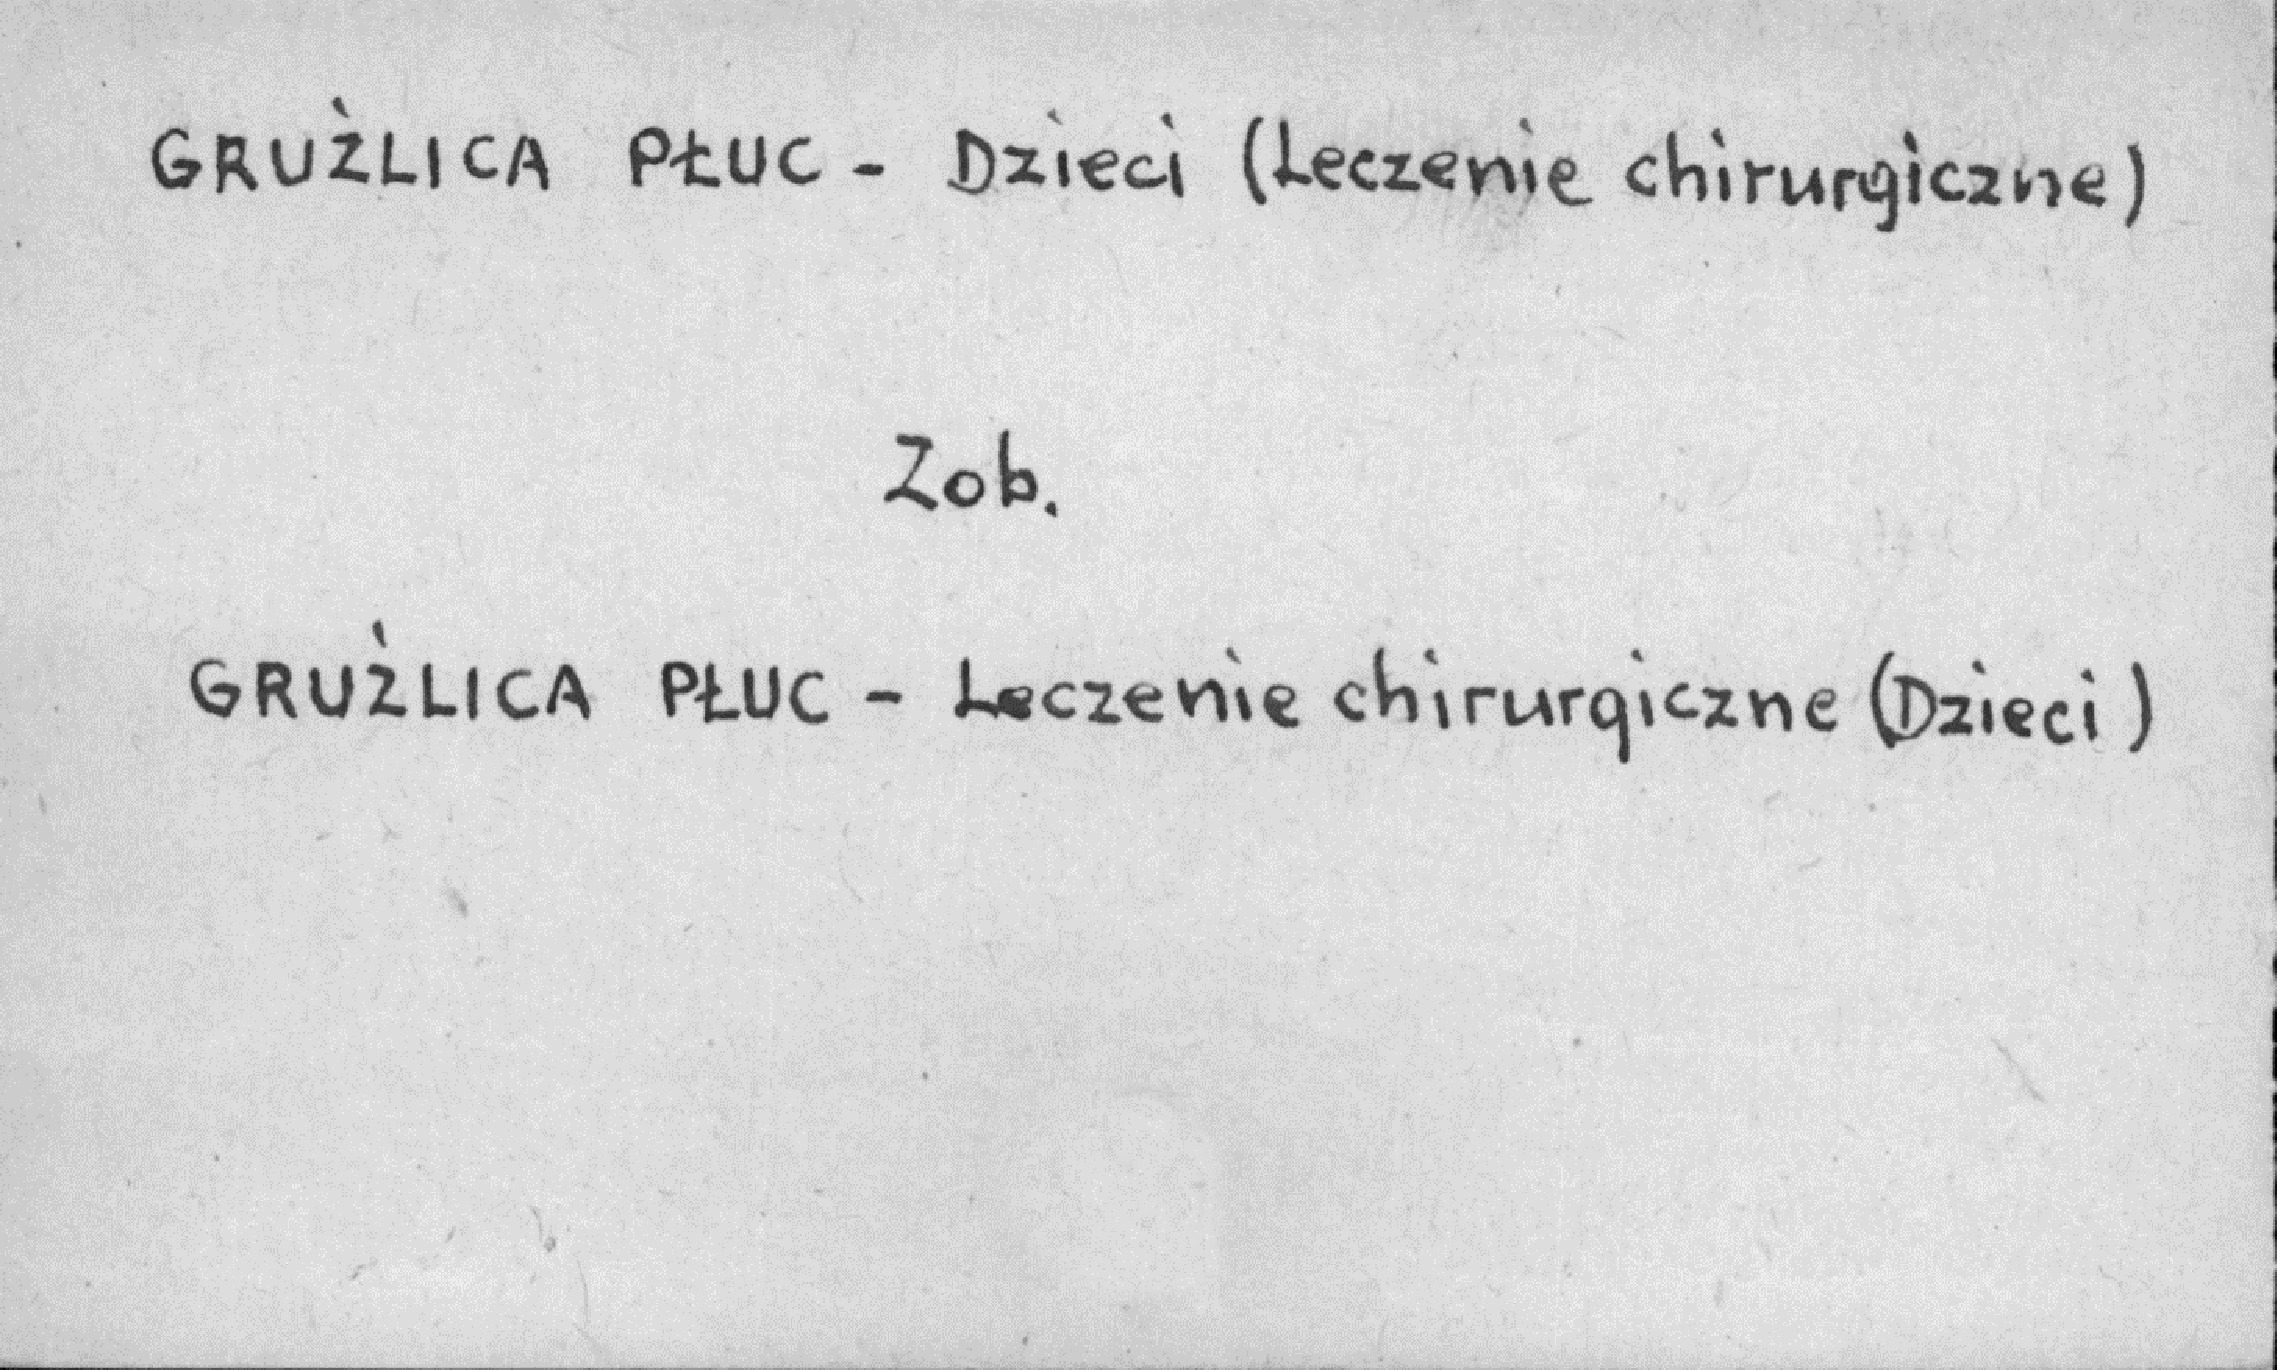 GRUŻLICA PŁUC - Dzieci (Leczenie chirurgiczne)
Zob.
GRUŻLICA PŁUC - Leczenie chirurgiczne (Dzieci)